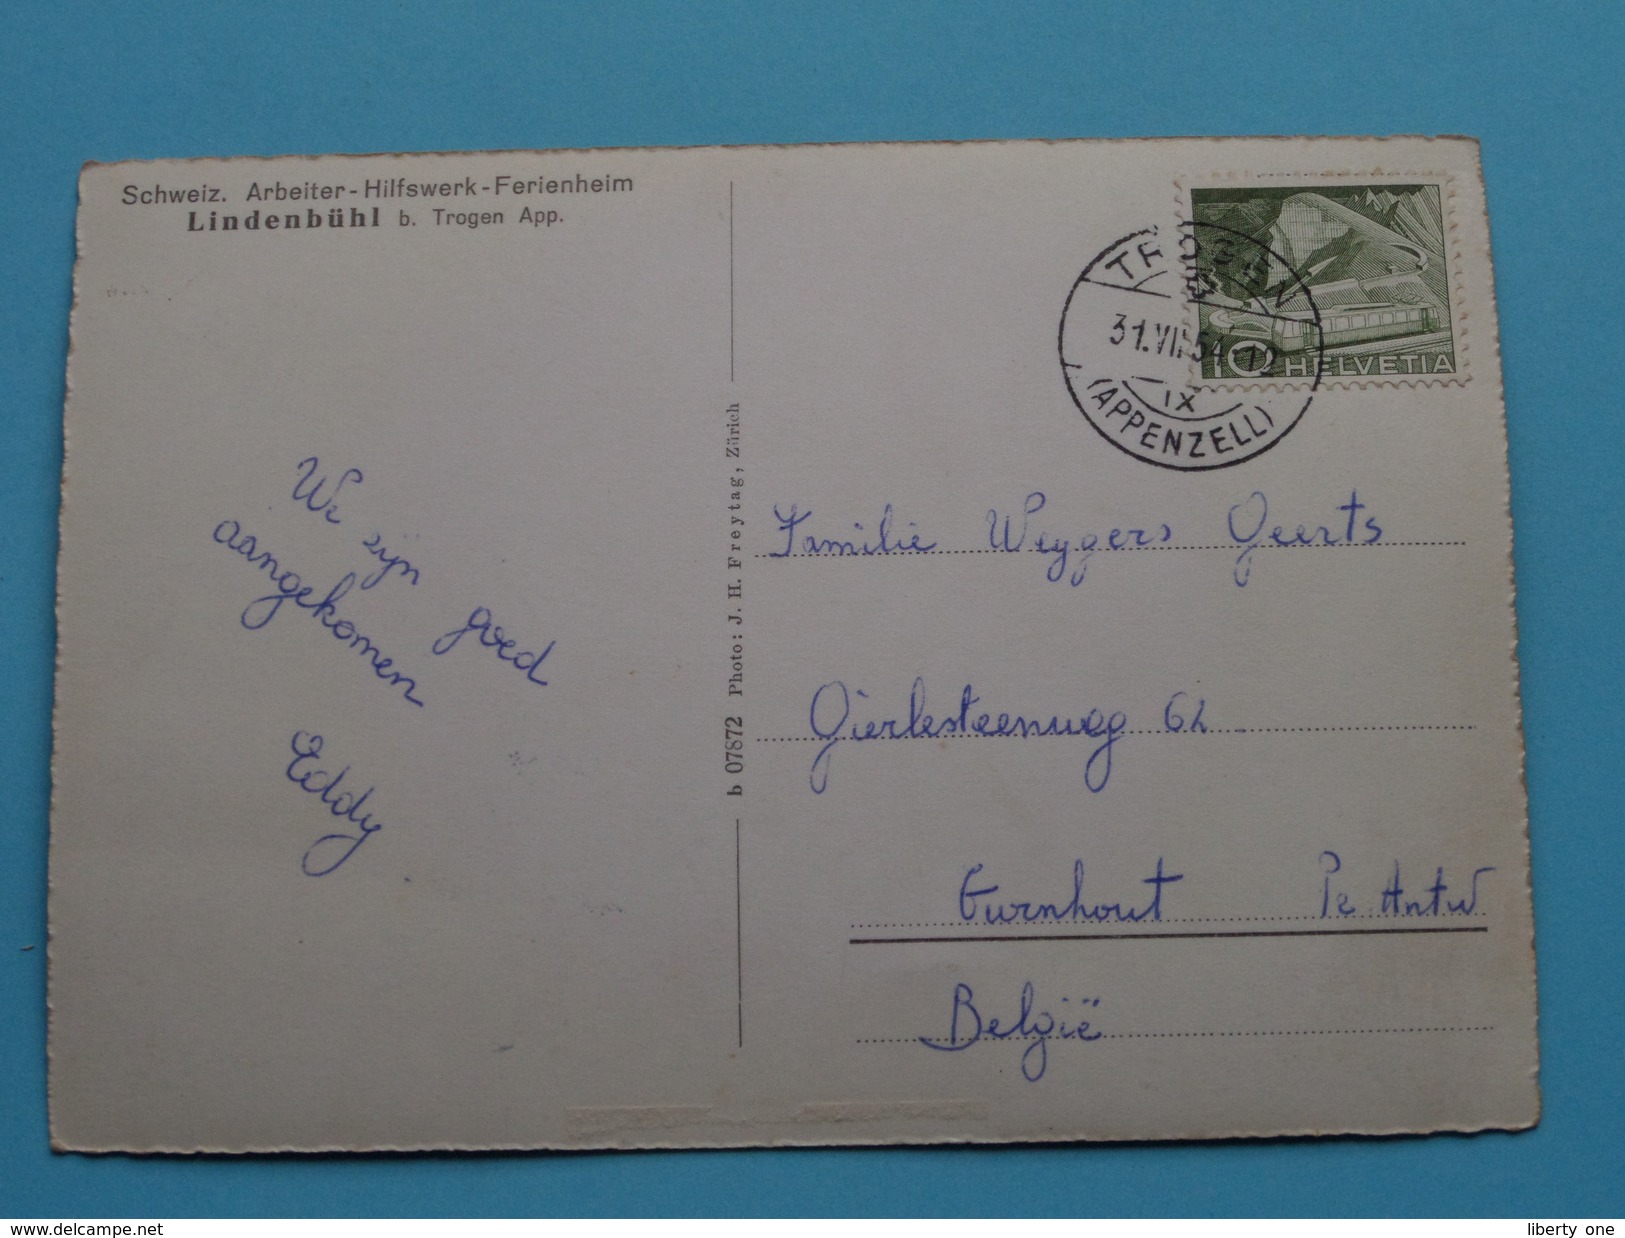 Schweiz. Arbeiter-Hilfswerk-Ferienheim
Lindenbühl b. Trogen App.
We zijn goed
aangekomen
Eddy
b 07872 Photo: J. H. Freytag, Zürich
TROGEN
31.VII.54-12
IX
(APPENZELL)
10 HELVETIA
Familie Weygers Geerts
Gierlesteenweg 62
Turnhout Pr Antw
België
delcampe.net
liberty one